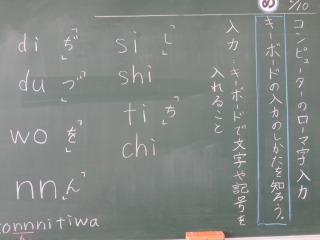 コンピューターのローマ字入力
め
キーボードの入力のしかたを知ろう。
入力…キーボードで文字や記号を
入れること
si「し」
shi
ti「ち」
chi
di「ぢ」
du「づ」
wo「を」
nn「ん」
konnnitiwa
n